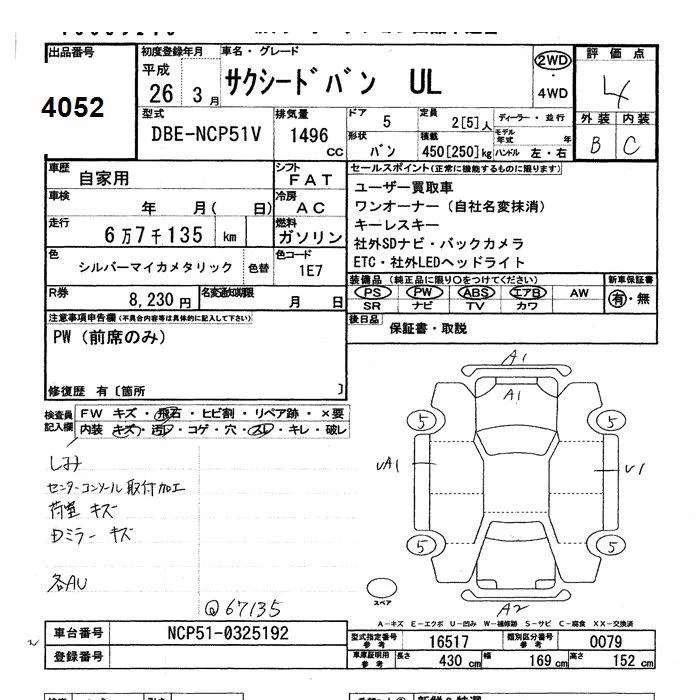 出品番号
4052
初度登録年月
平成
26 3 月
車名・グレード
サクシードバン UL
2WD
・
4WD
評価点
4
外装 内装
B C
型式
DBE-NCP51V
排気量
1496
CC
ドア
5
定員
2[5]人
ディーラー・並行
形状
バン
積載
450[250]kg
モデル年式 年
ハンドル 左・右
車歴
自家用
シフト
FAT
車検
年 月( 日)
冷房
AC
走行
6万7千135 km
燃料
ガソリン
色
シルバーマイカメタリック
色替
色コード
1E7
R券
8,230 円
名変通知期限
月 日
セールスポイント(正常に機能するものに限ります)
ユーザー買取車
ワンオーナー(自社名変抹消)
キーレスキー
社外SDナビ・バックカメラ
ETC・社外LEDヘッドライト
装備品(純正品に限り○をつけてください)
PS PW ABS エアB AW
SR ナビ TV カワ
新車保証書
有・無
後日品
保証書・取説
注意事項申告欄(不具合内容等は具体的に記入して下さい)
PW(前席のみ)
修復歴 有〔箇所 〕
検査員記入欄
FW キズ・飛石・ヒビ割・リペア跡・×要
内装 キズ・汚レ・コゲ・穴・スレ・キレ・破レ
しみ
センターコンソール取付加工
荷室 キズ
Dミラー キズ
各AU
Q67135
A1
A1
5 5
UA1 U1
5 5
A2
スペア
A-キズ E-エクボ U-凹み W-補修跡 S-サビ C-腐食 XX-交換済
車台番号
NCP51-0325192
登録番号
型式指定番号
参考
16517
類別区分番号
参考
0079
車庫証明用
参考
長さ
430 cm
幅
169 cm
高さ
152 cm